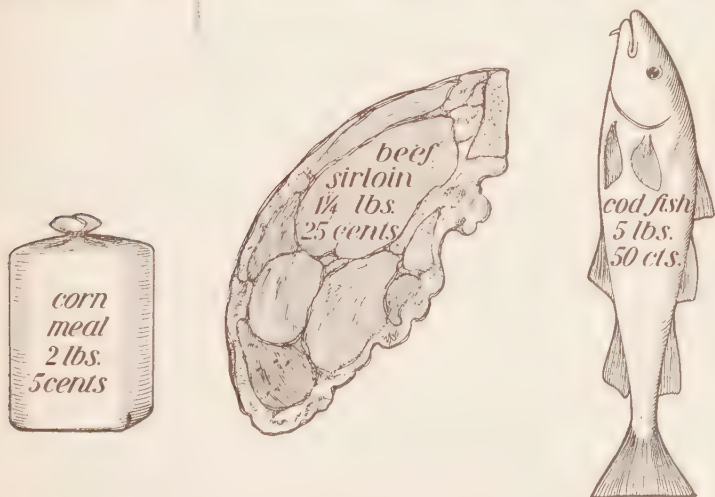 corn
meal
2 lbs.
5 cents
beef
sirloin
1¼ lbs.
25 cents
cod fish
5 lbs.
50 cts.